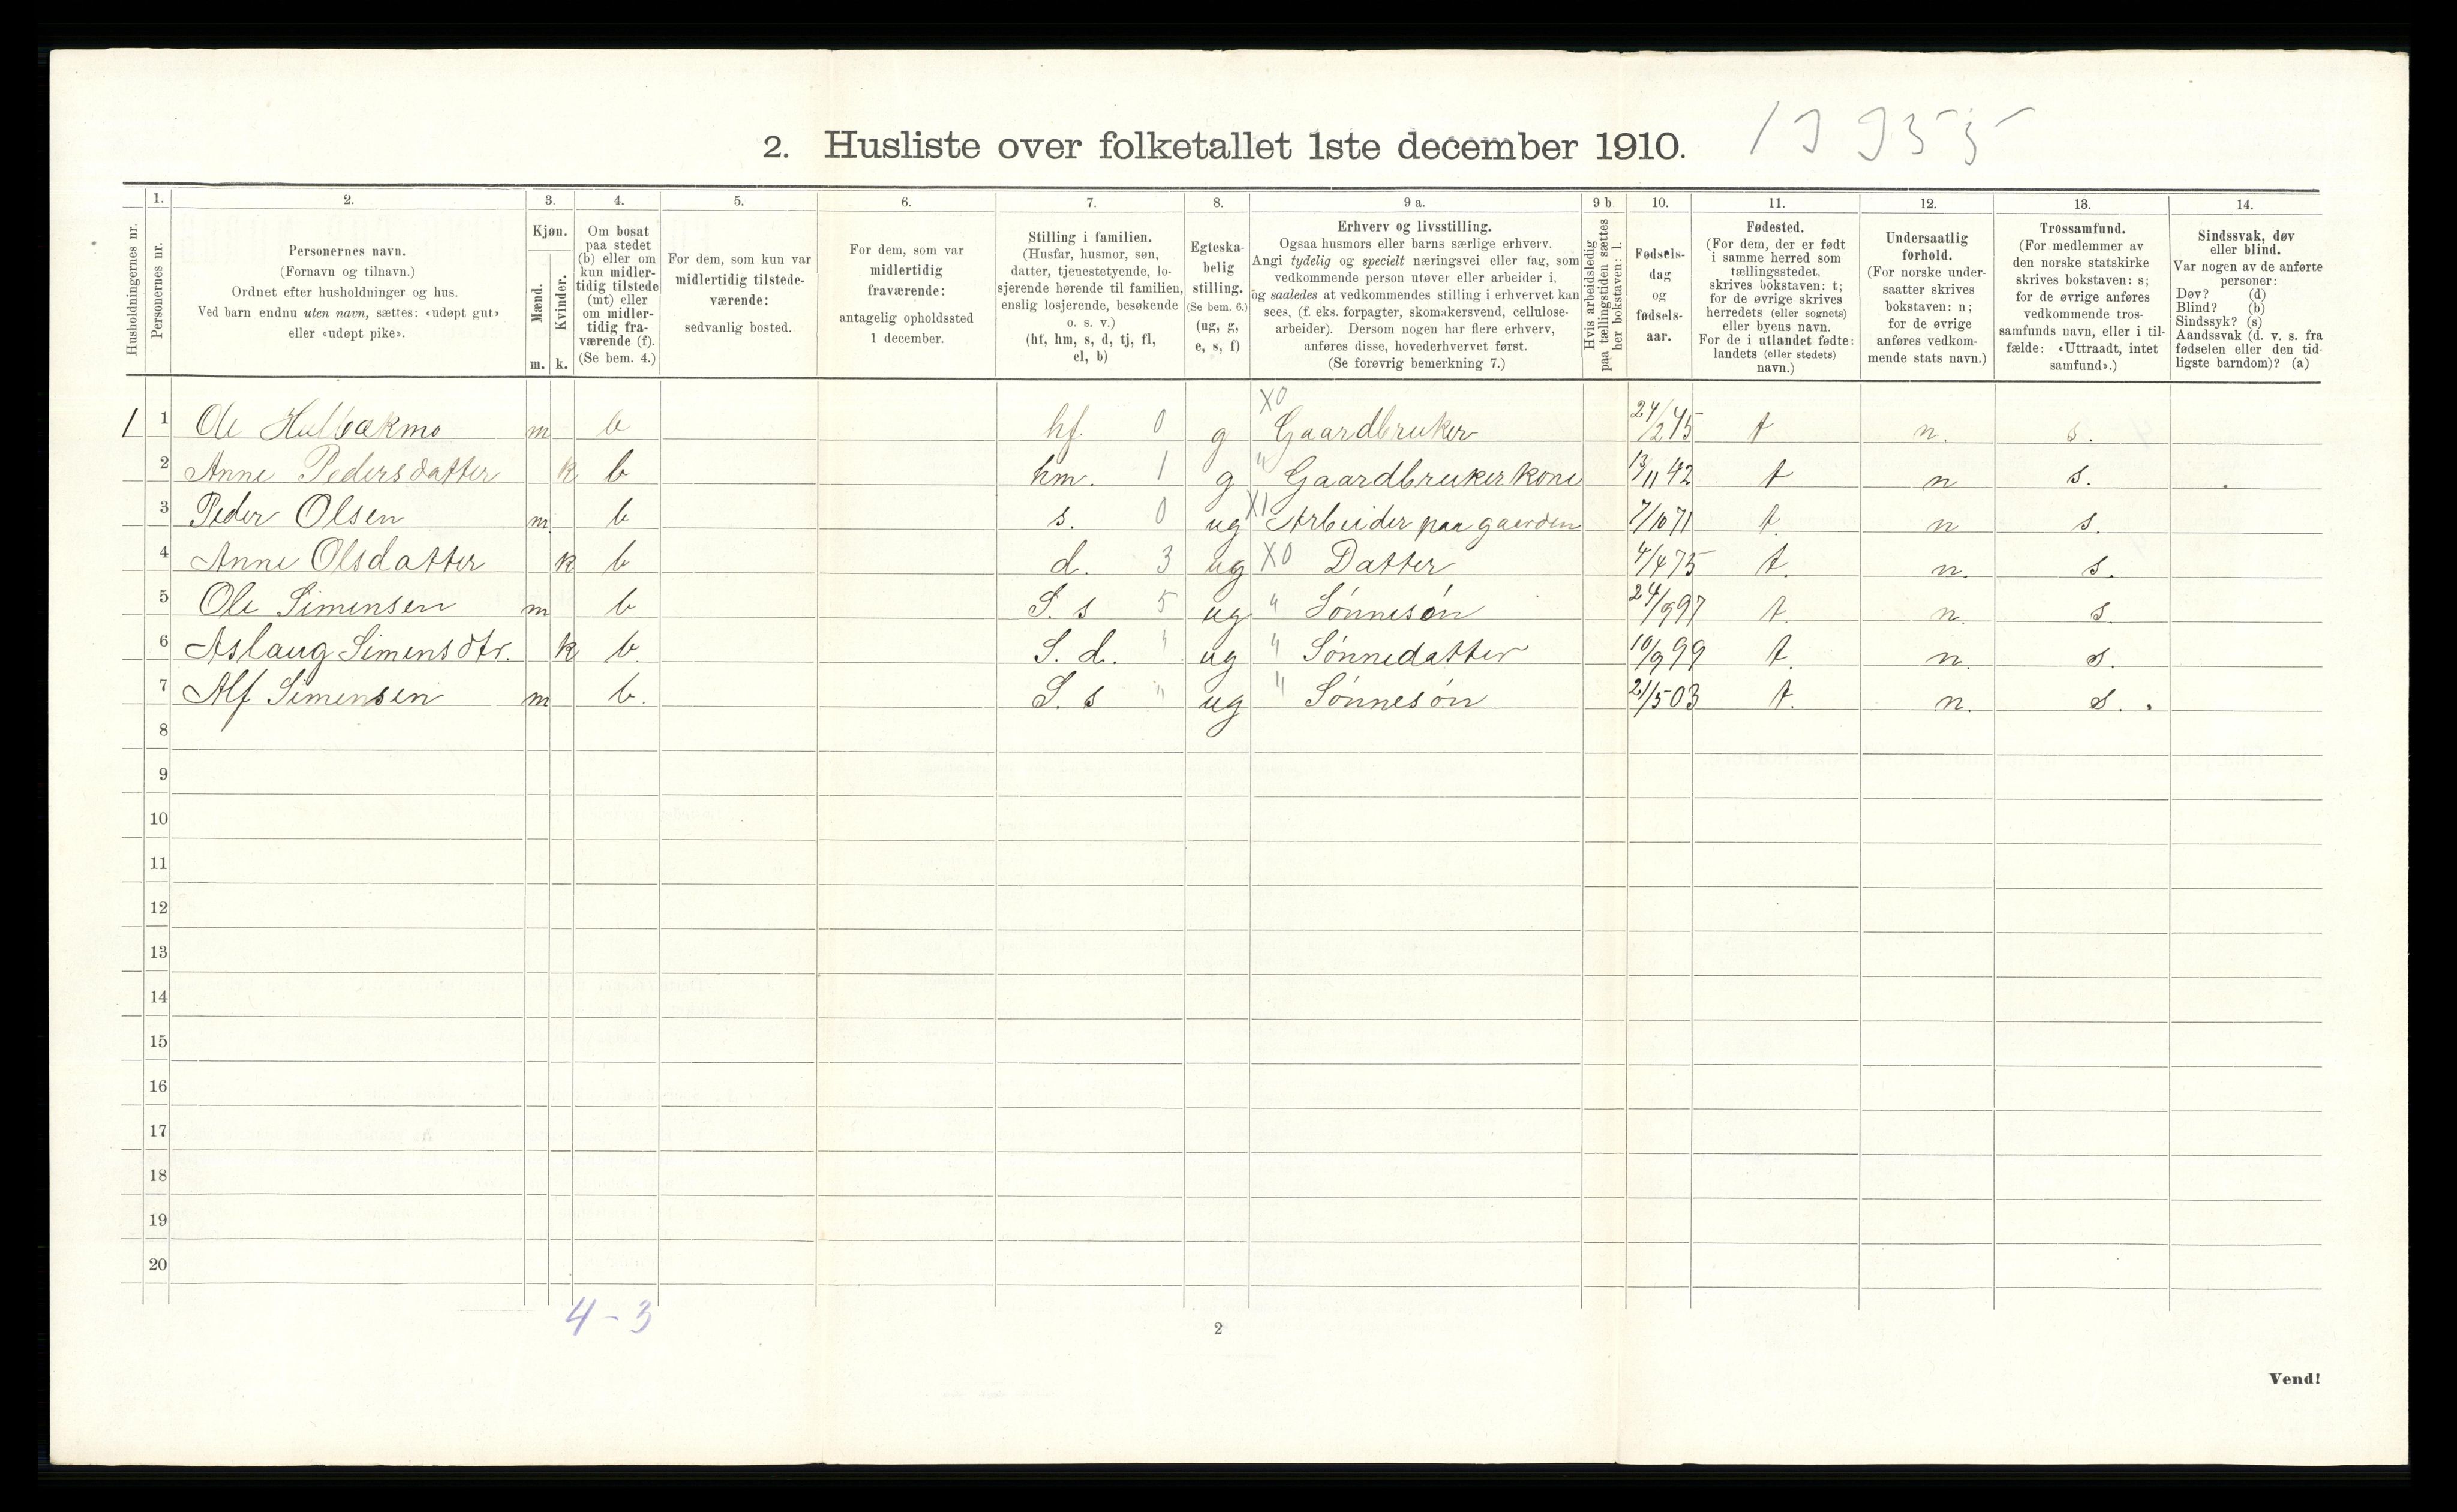 2. Husliste over folketallet 1ste december 1910.
Husholdningernes nr.
1. Personernes nr.
2. Personernes navn. (Fornavn og tilnavn.) Ordnet efter husholdninger og hus. Ved barn endnu uten navn, sættes: «udøpt gut» eller «udøpt pike».
3. Kjøn. Mænd. m. Kvinder. k.
4. Om bosat paa stedet (b) eller om kun midlertidig tilstede (mt) eller om midlertidig fraværende (f). (Se bem. 4.)
5. For dem, som kun var midlertidig tilstedeværende: sedvanlig bosted.
6. For dem, som var midlertidig fraværende: antagelig opholdssted 1 december.
7. Stilling i familien. (Husfar, husmor, søn, datter, tjenestetyende, losjerende hørende til familien, enslig losjerende, besøkende o. s. v.) (hf, hm, s, d, tj, fl, el, b)
8. Egteskabelig stilling. (Se bem. 6.) (ug, g, e, s, f)
9 a. Erhverv og livsstilling. Ogsaa husmors eller barns særlige erhverv. Angi tydelig og specielt næringsvei eller fag, som vedkommende person utøver eller arbeider i, og saaledes at vedkommendes stilling i erhvervet kan sees, (f. eks. forpagter, skomakersvend, cellulosearbeider). Dersom nogen har flere erhverv, anføres disse, hovederhvervet først. (Se forøvrig bemerkning 7.)
9 b Hvis arbeidsledig paa tællingstiden sættes her bokstaven: l.
10. Fødselsdag og fødselsaar.
11. Fødested. (For dem, der er født i samme herred som tællingsstedet, skrives bokstaven: t; for de øvrige skrives herredets (eller sognets) eller byens navn. For de i utlandet fødte: landets (eller stedets) navn.)
12. Undersaatlig forhold. (For norske undersaatter skrives bokstaven: n; for de øvrige anføres vedkommende stats navn.)
13. Trossamfund. (For medlemmer av den norske statskirke skrives bokstaven: s; for de øvrige anføres vedkommende trossamfunds navn, eller i tilfælde: «Uttraadt, intet samfund».)
14. Sindssvak, døv eller blind. Var nogen av de anførte personer: Døv? (d) Blind? (b) Sindssyk? (s) Aandssvak (d. v. s. fra fødselen eller den tidligste barndom)? (a)
1 1 Ole Hulbækmo m b hf. 0 g X0 Gaardbruker 24/2 45 t n. s.
2 Anne Pedersdatter k b hm. 1 g " Gaardbrukerkone 13/11 42 t n s.
3 Peder Olsen m b s. 0 ug X1 Arbeider paa gaarden 7/10 71 t. n s.
4 Anne Olsdatter k b d. 3 ug X0 Datter 4/4 75 t. n. s.
5 Ole Simensen m b S. s 5 ug " Sønnesøn 24/9 97 t. n. s.
6 Aslaug Simensdtr. k b. S. d. " ug " Sønnedatter 10/9 99 t. n. s.
7 Alf Simensen m b. S. s " ug " Sønnesøn 21/5 03 t. n. s.
8
9
10
11
12
13
14
15
16
17
18
19
20
4 - 3
2
Vend!